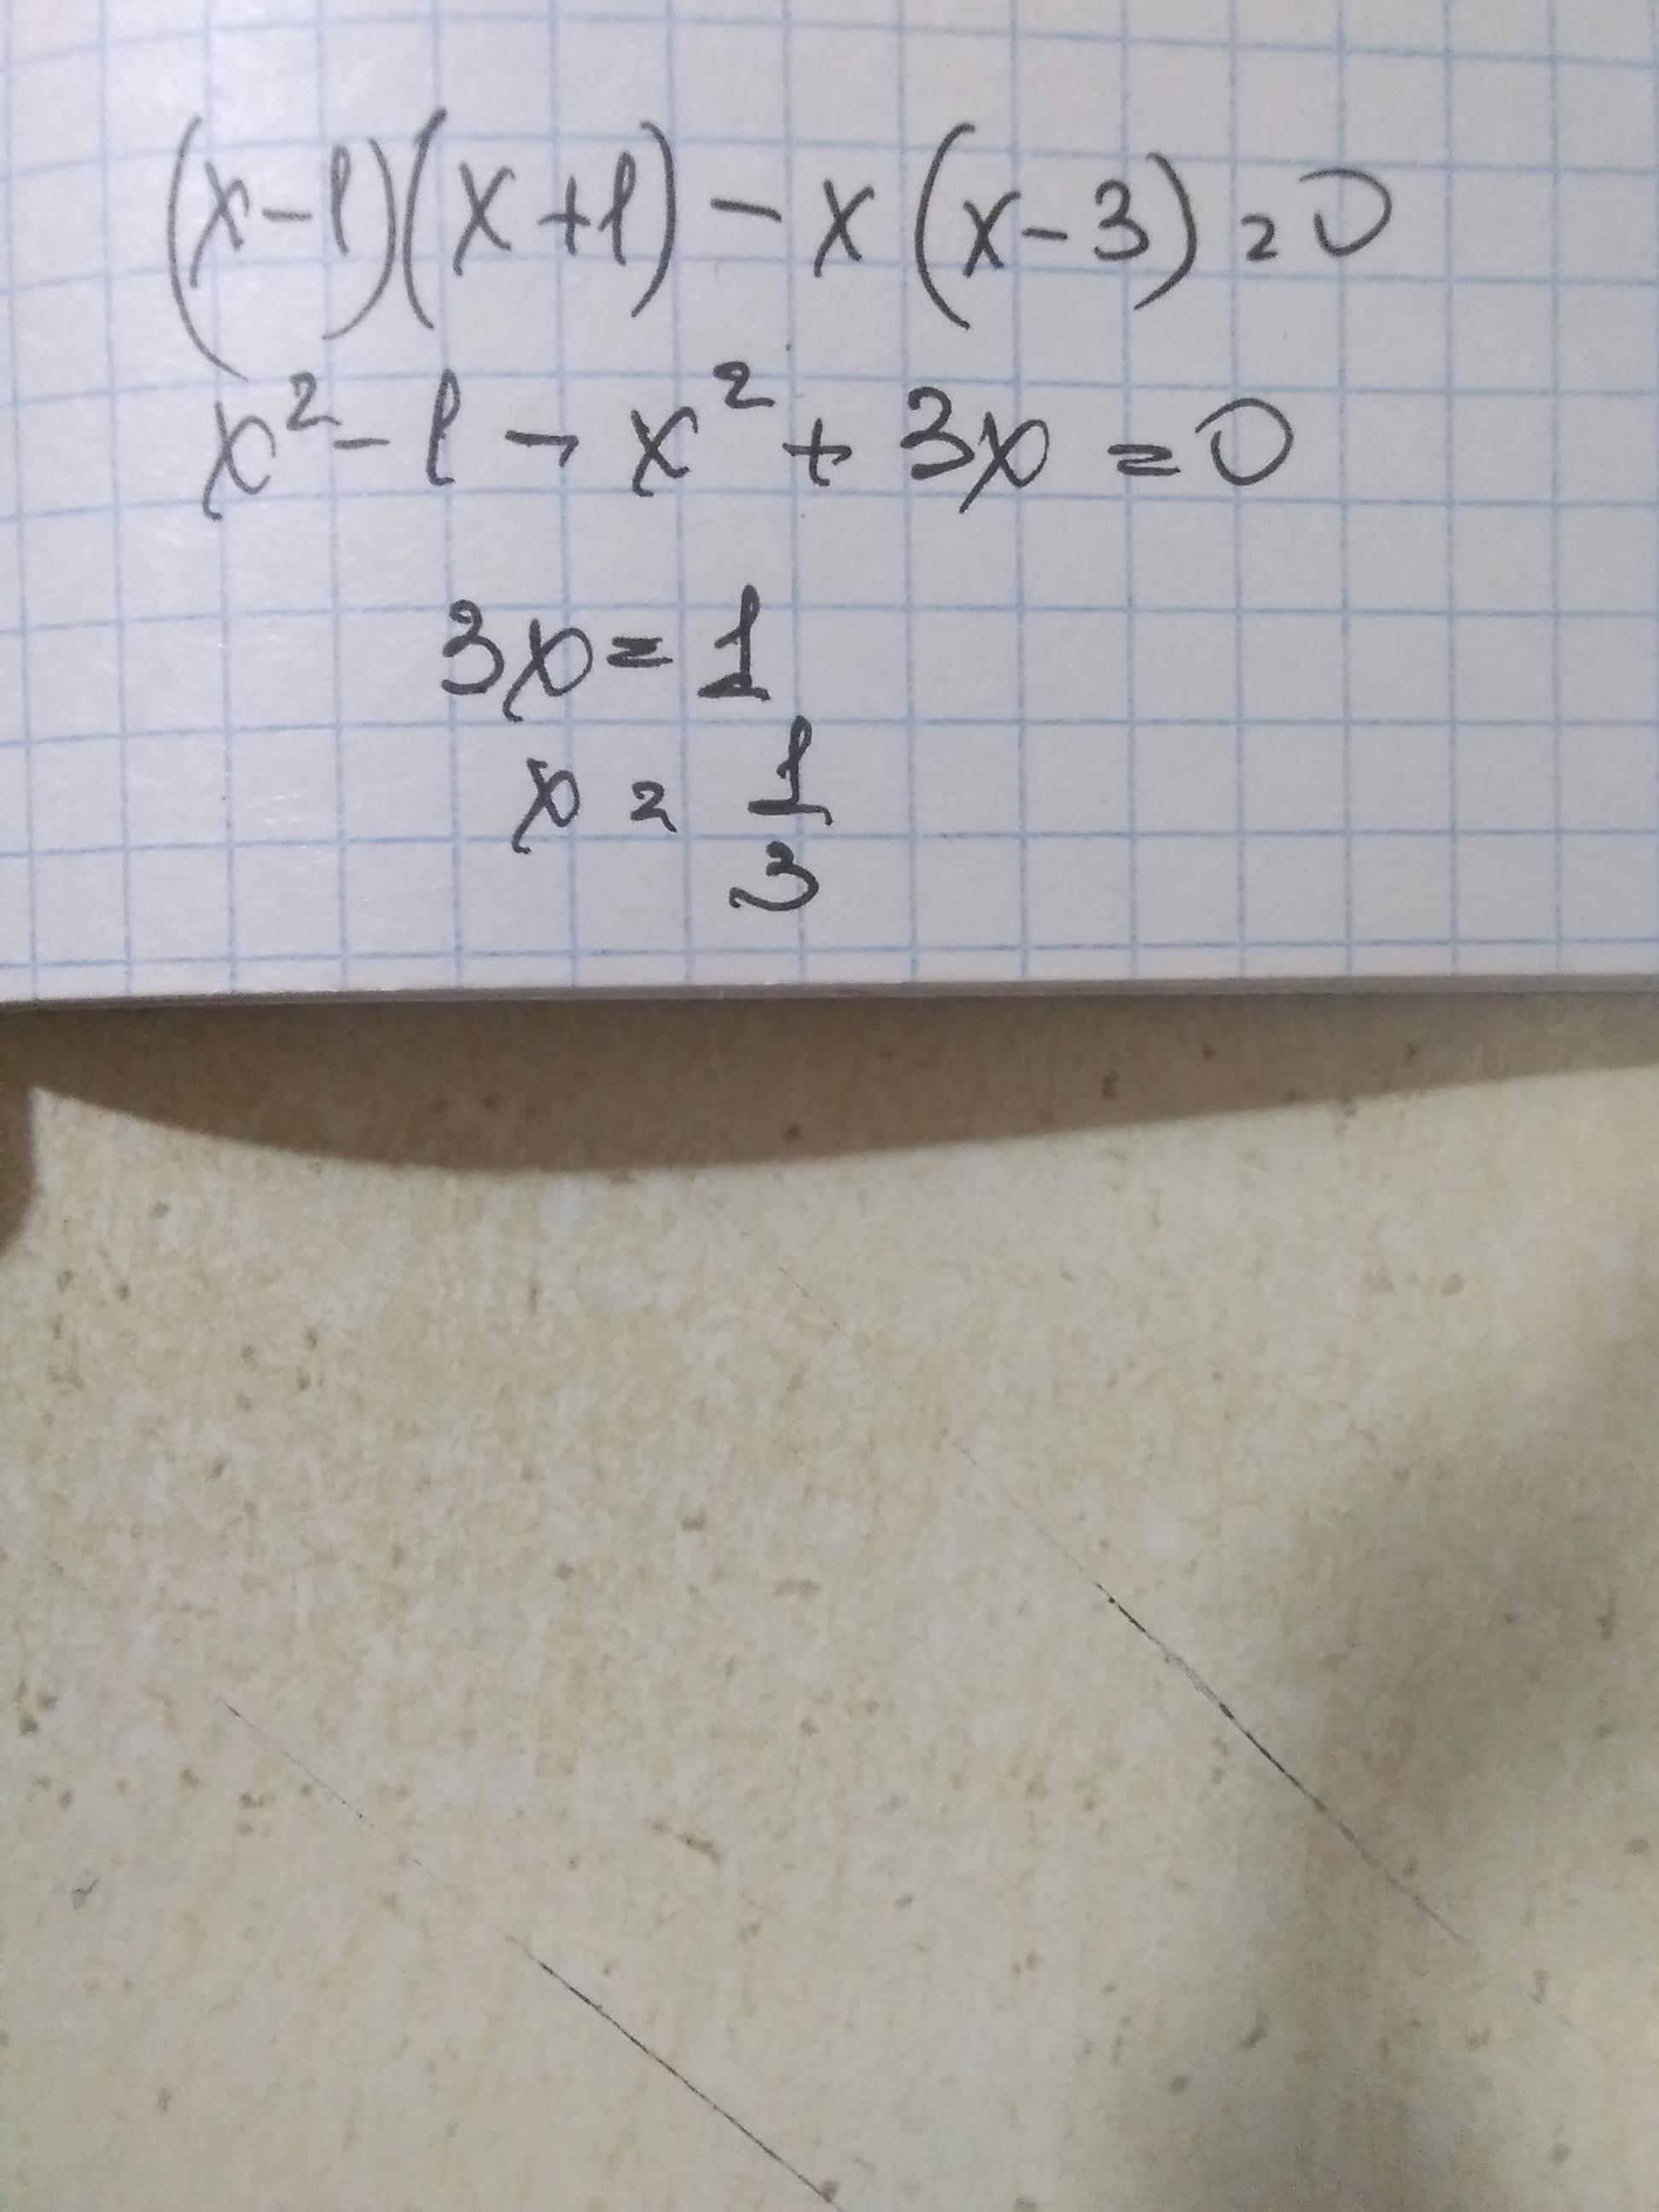 (x-1)(x+1) - x(x-3) = 0
x² - 1 - x² + 3x = 0
3x = 1
x = 1/3